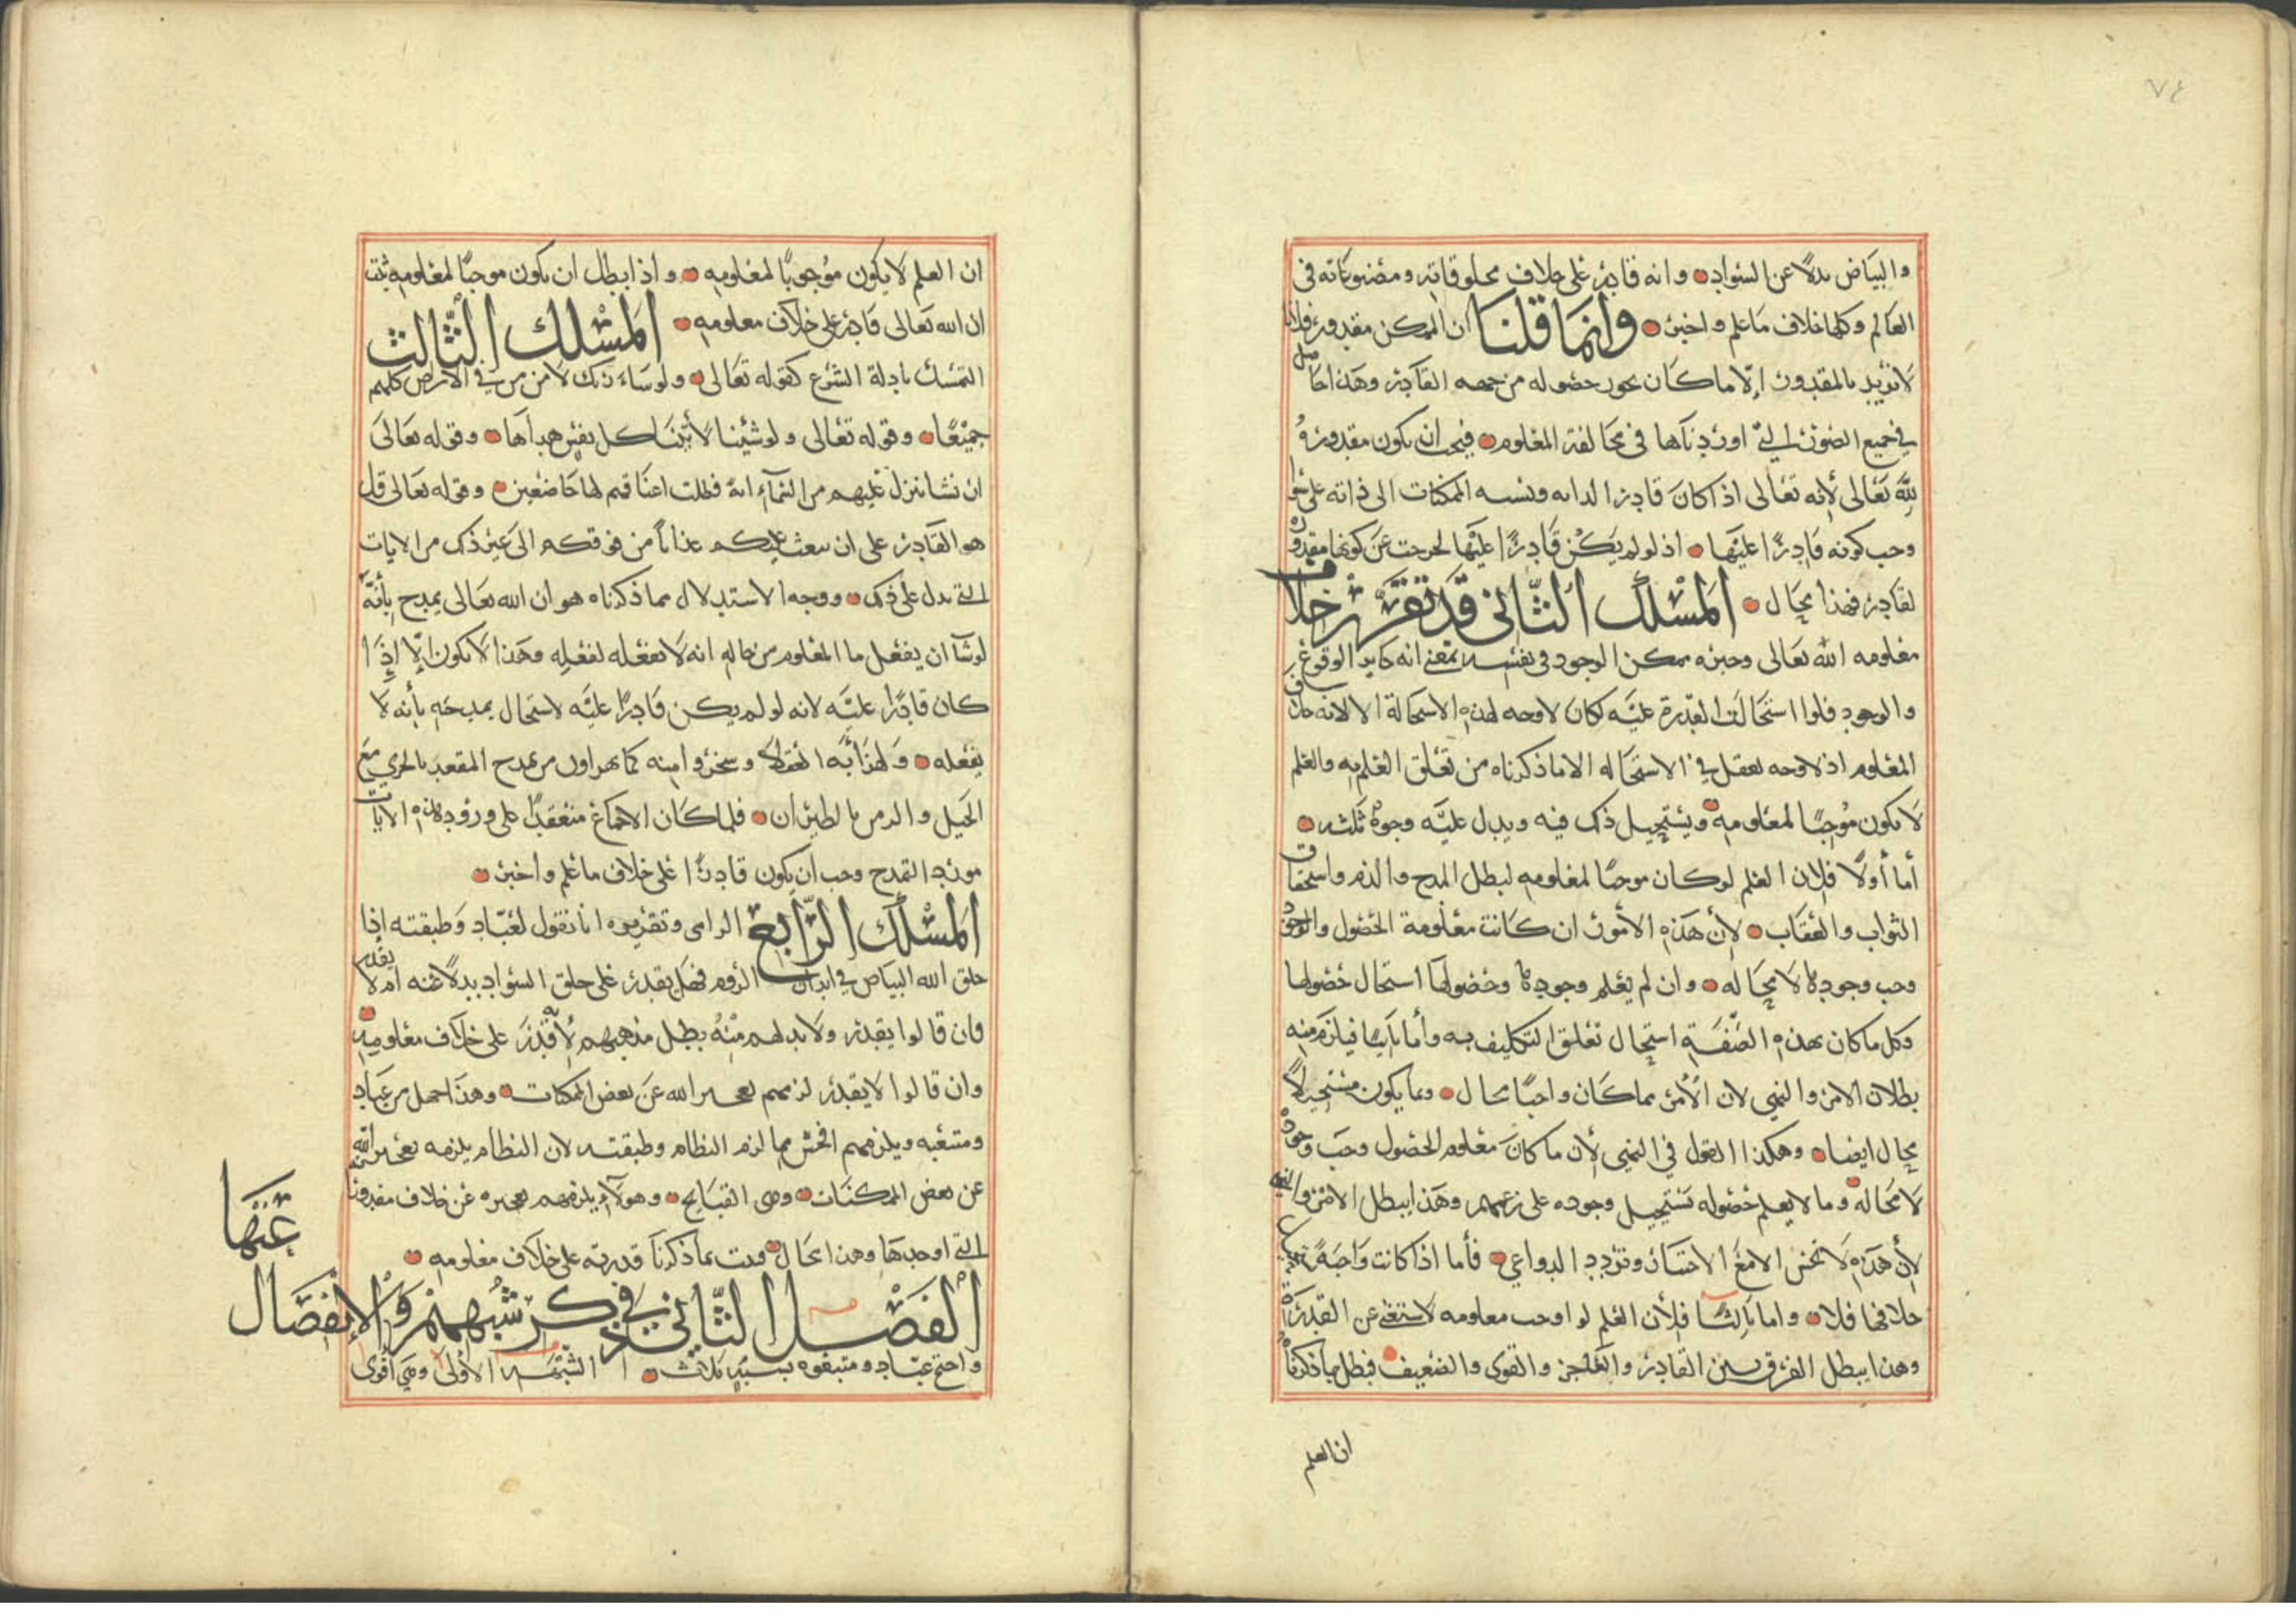 ٧٤
والبياض بدلا عن السواد وانه قادر على خلاف مخلوقاته ومصنوعاته فى
العالم وكلها خلاف ما علم واخبر وانما قلنا ان الممكن مقدور فلانا
لا نريد بالمقدور الا ما كان يجوز حصوله من جهه القادر وهذا حاصل
في جميع الصور التي اوردناها فى مخالفة المعلوم فيجب ان يكون مقدورة
لله تعالى لأنه تعالى اذا كان قادرا لذاته ونسبه الممكنات الى ذاته على سوا
وجب كونه قادرا عليها اذ لو لم يكن قادرا عليها لخرجت عن كونها مقدوره
لقادر فهذا محال المسلك الثانى قد تقرر خلاف
معلومه الله تعالى وخبره ممكن الوجود فى نفسه بمعنى انه جايز الوقوع
والوجود فلوا استحالت القدرة عليه لكان لا وجه لهذه الاستحالة الا لانه خلاف
المعلوم اذ لا وجه يعقل في الاستحاله الا ما ذكرناه من تعلق العلم به والعلم
لا يكون موجبا لمعلومه ويستحيل ذلك فيه ويدل عليه وجوه ثلثه
أما أولا فلان العلم لو كان موجبا لمعلومه لبطل المدح والذم واستحقاق
الثواب والعقاب لأن هذه الأمور ان كانت معلومة الحصول والوجود
وجب وجودها لا محاله وان لم يعلم وجودها وحضولها استحال حصولها
وكل ما كان بهذه الصفة استحال تعلق التكليف به وأما ثانيا فيلزم منه
بطلان الامر والنهى لان الأمر بما كان واجبا محال وبما يكون مستحيلا
محال ايضا وهكذا القول في النهى لأن ما كان معلوم الحصول وجب وجوده
لا محاله وما لا يعلم حصوله تستحيل وجوده على زعمهم وهذا يبطل الامر والنهي
لأن هذه لا تحسن الا مع الاختيار وتردد الدواعي فأما اذا كانت واجبة
خلافها فلا واما ثالثا فلأن العلم لو اوجب معلومه لاستغنى عن القدرة
وهذا يبطل الفرق بين القادر والعاجز والقوى والضعيف فبطل بما ذكرناه
ان العلم
ان العلم لا يكون موجوبا لمعلومه واذا بطل ان يكون موجبا لمعلومه ثبت
ان الله تعالى قادر على خلاف معلومه المسلك الثالث
التمسك بادلة الشرع كقوله تعالى ولو شاء ربك لامن من في الارض كلهم
جميعا وقوله تعالى ولو شئنا لأتينا كل نفس هداها وقوله تعالى
ان نشا ننزل عليهم من السماء اية فظلت اعناقهم لها خاضعين وقوله تعالى قل
هو القادر على ان يبعث عليكم عذابا من فوقكم الى غير ذلك من الايات
التي تدل على ذلك ووجه الاستدلال مما ذكرناه هو ان الله تعالى يمدح بأنه
لو شآ ان يفعل ما المعلوم من حاله انه لا يفعله لفعله وهذا لا يكون الا إذا
كان قادرا عليه لانه لو لم يكن قادرا عليه لاستحال يمدحه بأنه لا
يفعله ولهذا العقلا وسخروا منه كما يهزاون من يمدح المقعد بالجري مع
الخيل والزمن بالطيران فلما كان الاجماع منعقدا على ورود هذه الايات
مورد التمدح وجب ان يكون قادرا على خلاف ما علم وأخبر
المسلك الرابع الزامى وتقريره انا نقول لعباد وطبقته إذا
خلق الله البياض في ابدان الروم فهل يقدر على خلق السواد بدلا عنه ام لا يقدر
فان قالوا يقدر ولا بد لهم منه بطل مذهبهم لأنه قدر على خلاف معلومه
وان قالوا لا يقدر لزمهم تعجيز الله عن بعض الممكنات وهذا جهل من عباد
ومتبعيه ويلزمهم افحش مما لزم النظام وطبقته لان النظام يلزمه تعجيز الله
عن بعض الممكنات وهى القبايح وهولآء يلزمهم تعجيزه عن خلاف مقدوره
التي اوجدها وهذا محال فثبت بما ذكرنا قدرته على خلاف معلومه
الفصل الثاني في ذكر شبههم والانفصال عنها
واحتج عباد ومتبعوه بشبه ثلاث الشبهة الأولى وهي أقوى